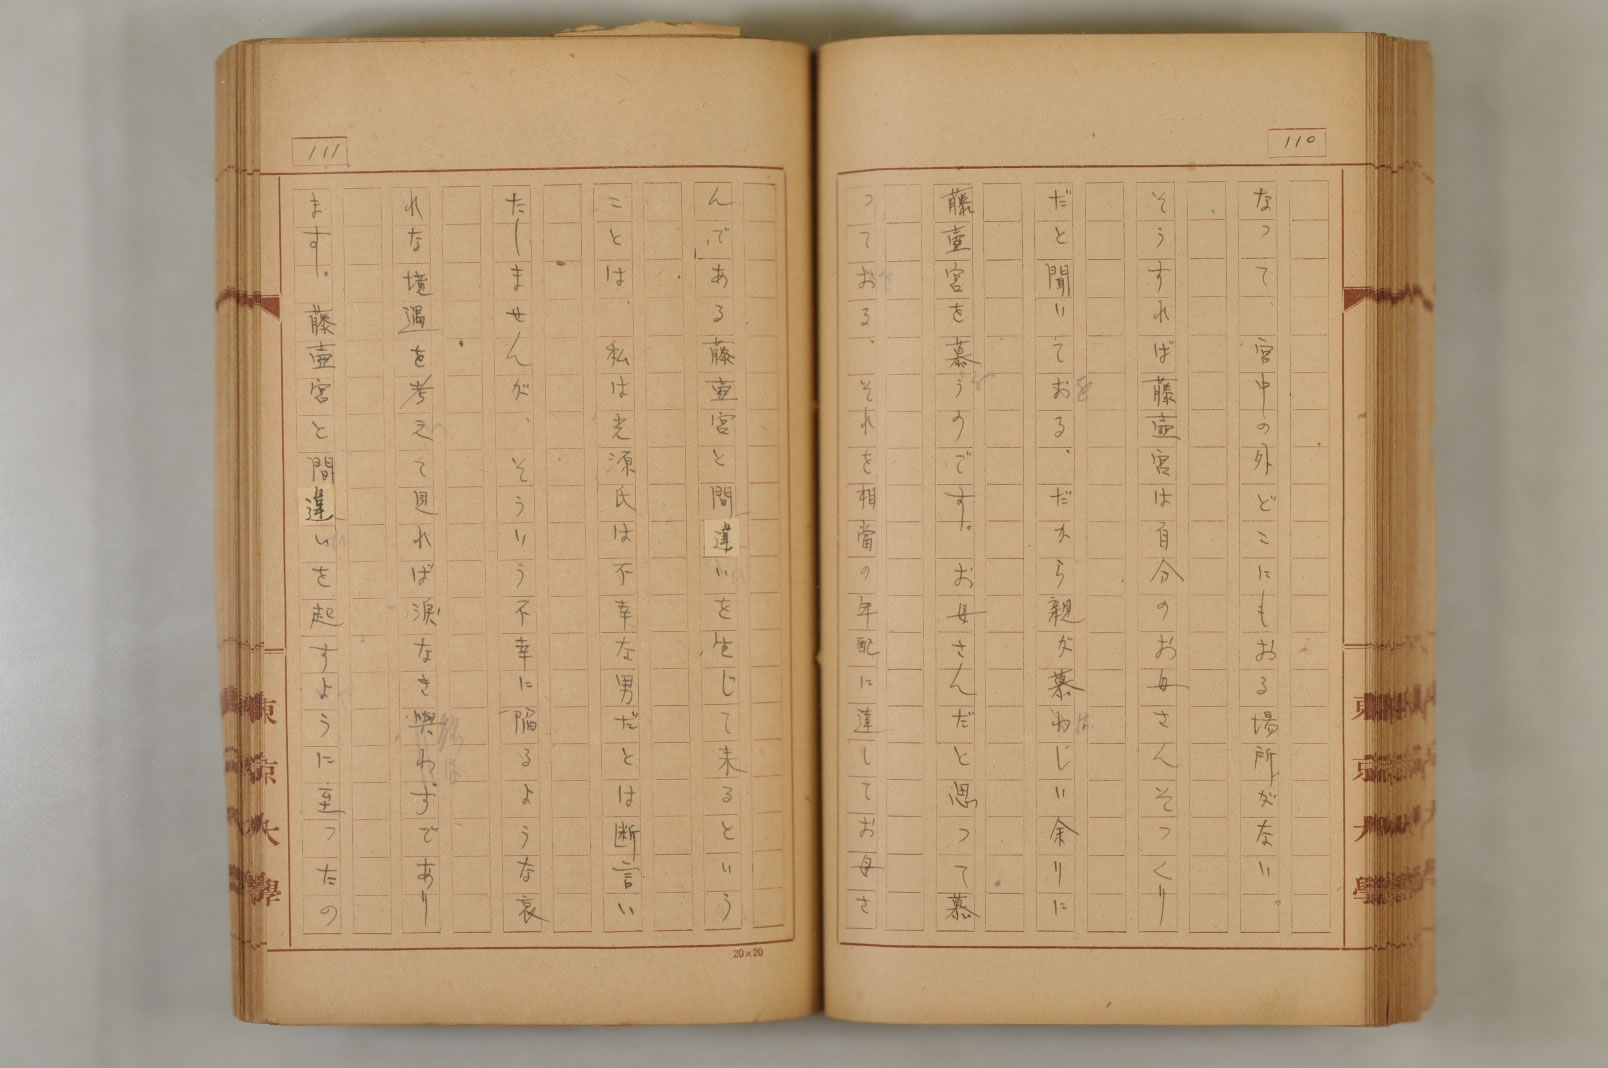 110
なって、宮中の外どこにもおる場所がない。
そうすれば藤壷宮は自分のお母さんそっくり
だと聞いておる、だから親が慕わじい余りに
藤壷宮を慕うのです。お母さんだと思って慕
っておる、それを相當の年配に達してお母さ
111
んである藤壷宮と間違いを生じて来るという
ことは、私は光源氏は不幸な男だとは断言い
たしませんが、そういう不幸に陥るような哀
れな境遇を考えて見れば涙なき與わずであり
ます。藤壷宮と間違いを起すように至ったの
20×20
東京大學